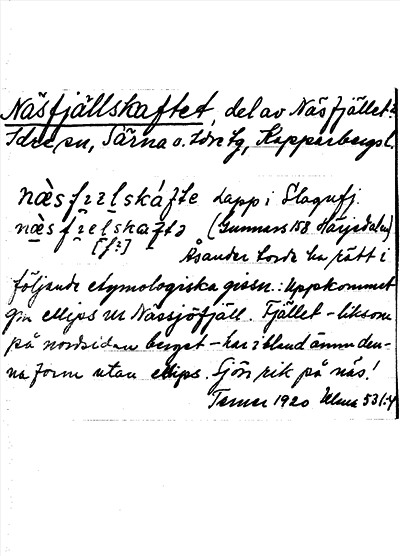 Näsfjällskaftet, del av Näsfjället:
Idre sn, Särna o. Idre tg, Kopparbergs l.
næ̀sfɪɪlskáfte Lapp i Slagufj.
næ̀sfɪelskaftə (Gunnars 158 Härjedalen)
[fɪ]
Åsander torde ha rätt i
följande etymologiska gissn.: Uppkommet
gm ellips ur Nässjöfjäll. Fjället – liksom
på nordsidan berget – har ibland ännu den-
na form utan ellips. Sjön rik på näs!
1920